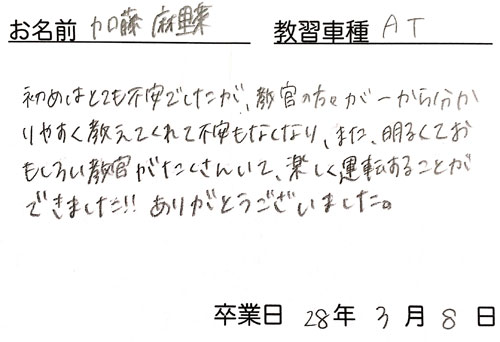 お名前 加藤 麻里菜 教習車種 AT
初めはとても不安でしたが、教官の方々が一から分か
りやすく教えてくれて不安もなくなり、また、明るくてお
もしろい教官がたくさんいて、楽しく運転することが
できました!! ありがとうございました。
卒業日 28年 3月 8日